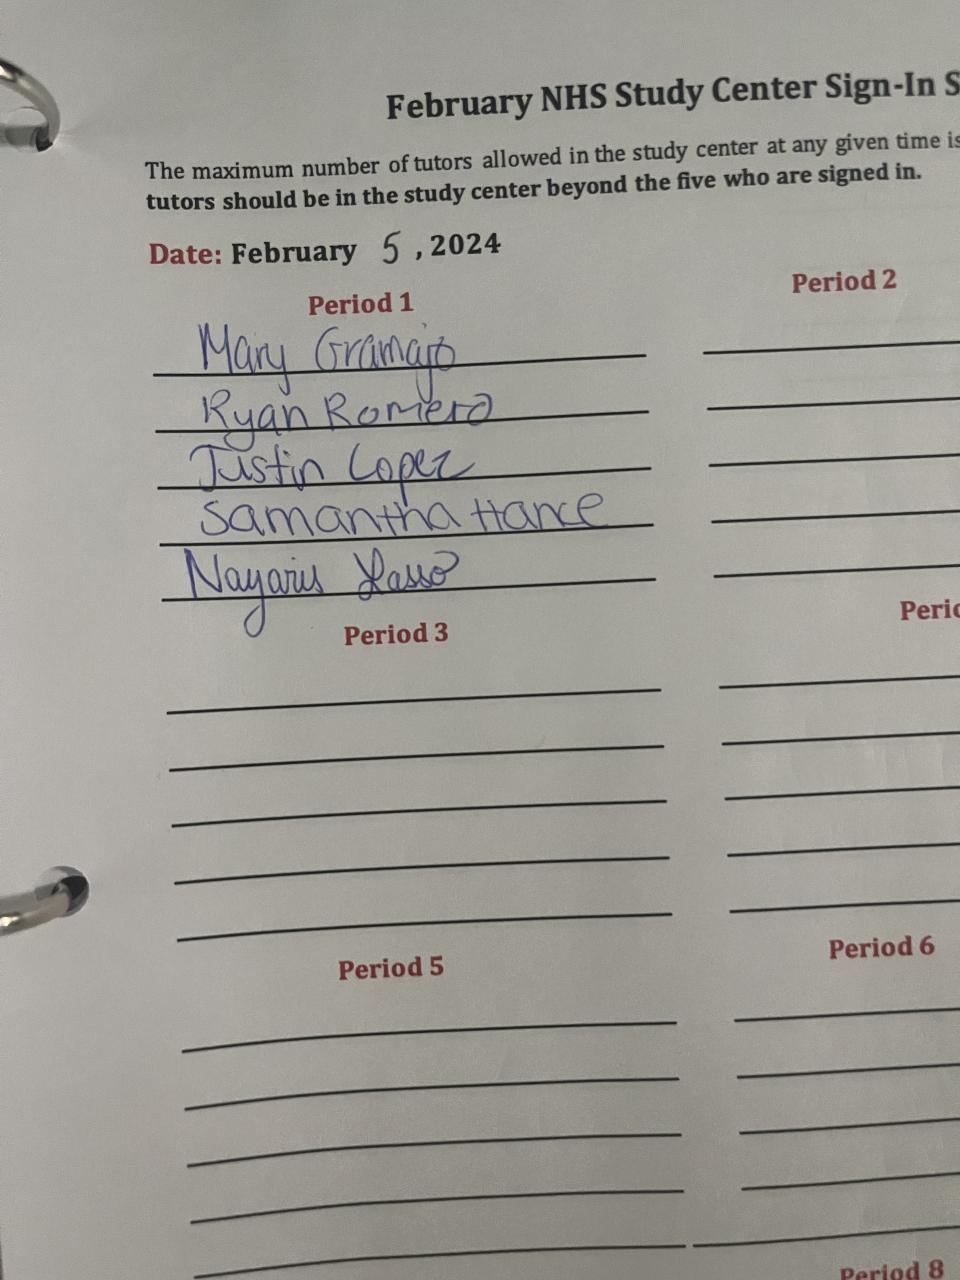 February NHS Study Center Sign-In S
The maximum number of tutors allowed in the study center at any given time is
tutors should be in the study center beyond the five who are signed in.
Date: February 5, 2024
Period 1
Period 2
Mary Gramajo
Ryan Romero
Justin Lopez
Samantha Hance
Nayaris Lasso
Period 3
Perio
Period 5
Period 6
Period 8